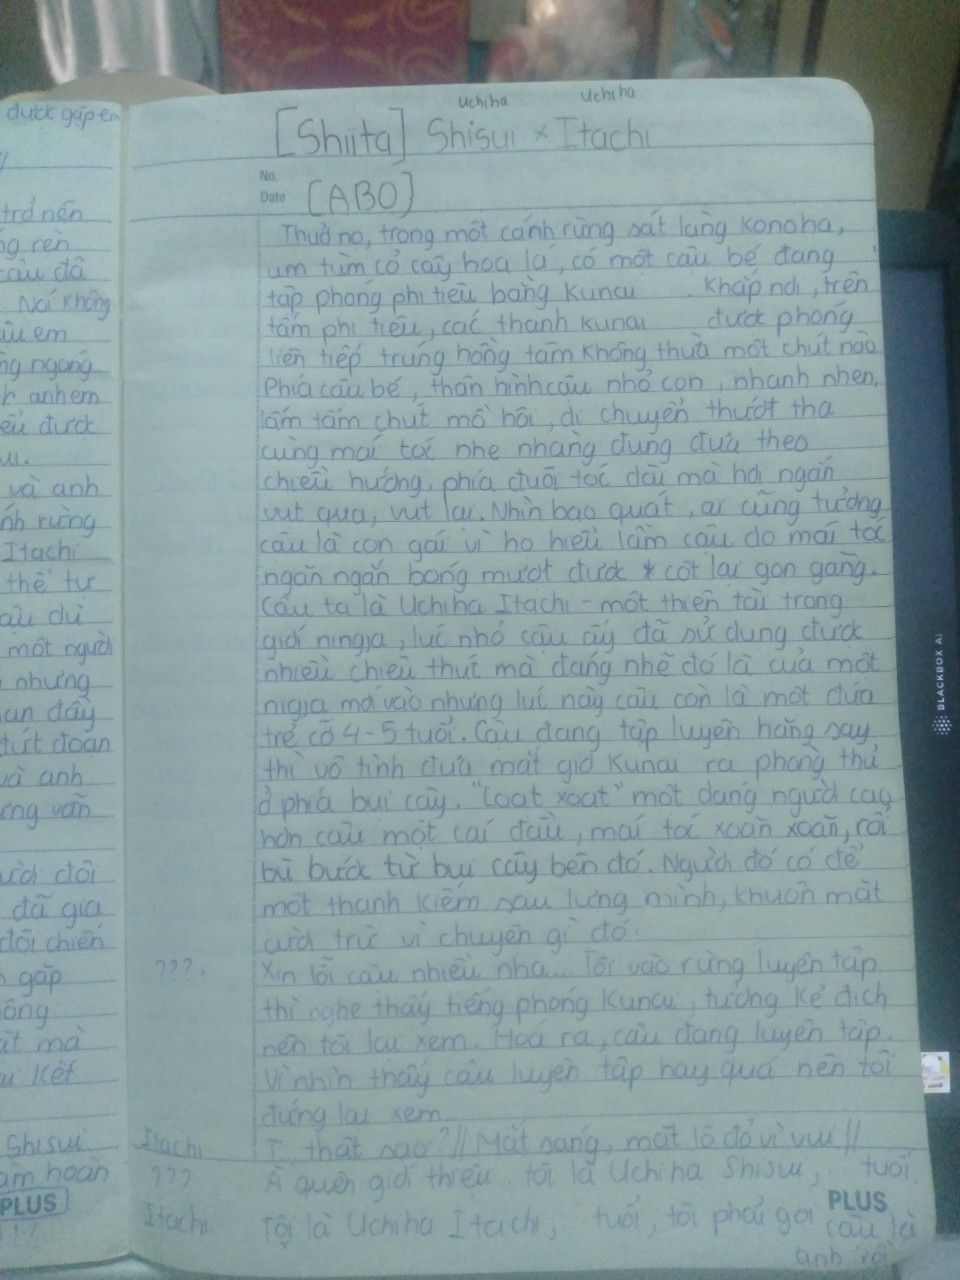 được gặp em
trở nên
ng rèn
cậu đã
. Nơi không
ậu em
ng ngang
anh em
ểu được
và anh
nh rừng
Itachi
thể tự
ậu dù
một người
nhưng
an đầy
đứt đoạn
và anh
ưng vẫn
ười đôi
đã gia
đội chiến
gặp
ông
ật mà
u kết
Shisui
àm hoàn
PLUS
Uchiha Uchiha
[Shiita] Shisui × Itachi
No.
Date [ABO]
Thuở nọ, trong một cánh rừng sát làng Konoha,
um tùm cỏ cây hoa lá, có một cậu bé đang
tập phóng phi tiêu bằng Kunai . Khắp nơi, trên
tấm phi tiêu, các thanh kunai được phóng
liên tiếp trúng hồng tâm không thừa một chút nào
Phía cậu bé, thân hình cậu nhỏ con, nhanh nhẹn,
lấm tấm chút mồ hôi, di chuyển thướt tha
cùng mái tóc nhẹ nhàng đung đưa theo
chiều hướng, phía đuôi tóc dài mà hơi ngắn
vụt qua, vụt lại. Nhìn bao quát, ai cũng tưởng
cậu là con gái vì họ hiểu lầm cậu do mái tóc
ngăn ngắn bóng mượt được cột lại gọn gàng.
Cậu ta là Uchiha Itachi - một thiên tài trong
giới ningja, lúc nhỏ cậu ấy đã sử dụng được
nhiều chiêu thức mà đáng nhẽ đó là của một
nigja mới vào nhưng lúc này cậu còn là một đứa
trẻ cỡ 4-5 tuổi. Cậu đang tập luyện hăng say
thì vô tình đưa mắt giơ Kunai ra phòng thủ
ở phía bụi cây. "Loạt xoạt" một dáng người cao
hơn cậu một cái đầu, mái tóc xoăn xoăn, rối
bù bước từ bụi cây bên đó. Người đó có để
một thanh kiếm sau lưng mình, khuôn mặt
cười trừ vì chuyện gì đó.
???. Xin lỗi cậu nhiều nha... Tôi vào rừng luyện tập
thì nghe thấy tiếng phóng Kunai, tưởng kẻ địch
nên tôi lại xem. Hoá ra, cậu đang luyện tập.
Vì nhìn thấy cậu luyện tập hay quá nên tôi
đứng lại xem.
Itachi T.. thật sao? // Mắt sáng, mặt lộ đỏ vì vui //
??? À quên giới thiệu. Tôi là Uchiha Shisui, tuổi.
Itachi Tôi là Uchiha Itachi, tuổi, tôi phải gọi cậu là
anh rồi
PLUS
BLACKBOX AI